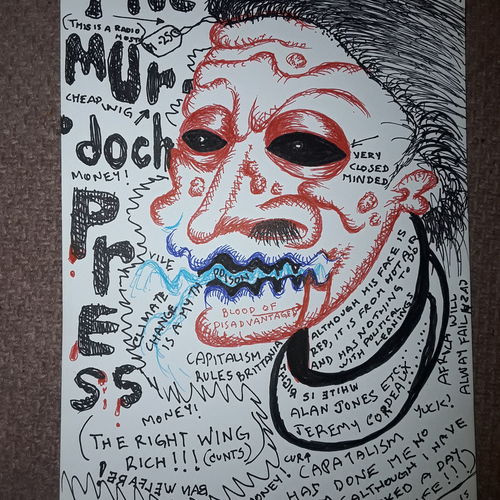 THE
(THIS IS A RADIO
HOST)
-25¢
MUr-
CHEAP WIG
doch
MONEY!
PrESS
VERY
CLOSED
MINDED
VILE
POISON
CLIMATE
CHANGE
IS A MYTH
BLOOD OF
DISADVANTAGED
CAPITALISM
RULES BRITTONIA
ALTHOUGH HIS FACE IS
RED, IT IS FROM HOT AIR
AND HAS NOTHING TO DO
WITH POLITICAL
LEANINGS
WHITE IS
RIGHT
ALAN JONES ETC
JEREMY CORDEAUX.....
AFRICA WILL
ALWAY FAIL
MONEY!
(THE RIGHT WING
RICH!!! (CUNTS)
BAN WELFARE!
MONEY!
YUCK!
CAPATALISM
HAS DONE ME NO
ALTHOUGH I HAVE
A DAY
!!!)